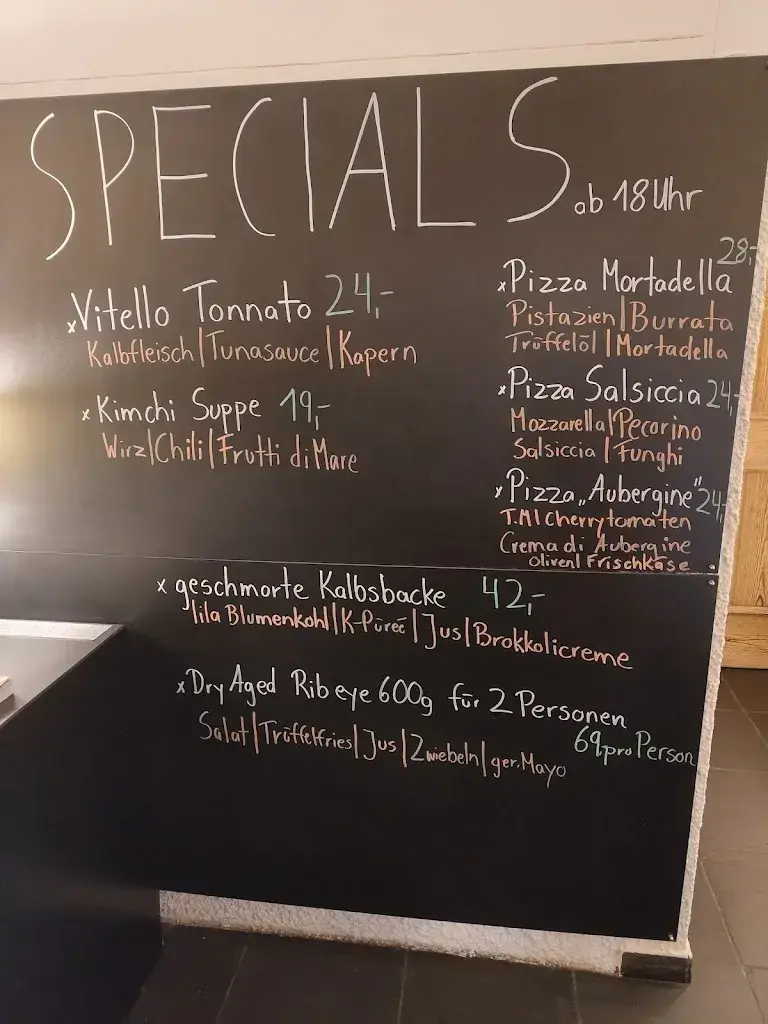 SPECIALS ab 18 Uhr
x Vitello Tonnato 24,-
Kalbfleisch | Tunasauce | Kapern
x Kimchi Suppe 19,-
Wirz | Chili | Frutti di Mare
28,-
x Pizza Mortadella
Pistazien | Burrata
Trüffelöl | Mortadella
x Pizza Salsiccia 24,-
Mozzarella | Pecorino
Salsiccia | Funghi
x Pizza „Aubergine" 24,-
T.M | Cherrytomaten
Crema di Aubergine
Oliven | Frischkäse
x geschmorte Kalbsbacke 42,-
lila Blumenkohl | K-Püreé | Jus | Brokkolicreme
x Dry Aged Rib eye 600g für 2 Personen
69,- pro Person
Salat | Trüffelfries | Jus | Zwiebeln | ger. Mayo